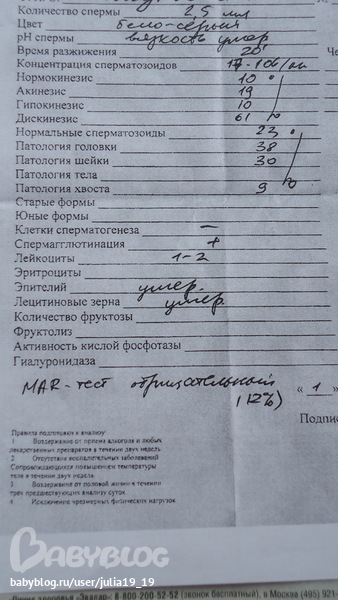 Количество спермы 2,5 мл
Цвет бело-серый
pH спермы вязкость умер
Время разжижения 20'
Концентрация сперматозоидов
Нормокинезис 10
Акинезис 19
Гипокинезис 10
Дискинезис 61
Нормальные сперматозоиды 23
Патология головки 38
Патология шейки 30
Патология тела
Патология хвоста 9
Старые формы
Юные формы
Клетки сперматогенеза —
Спермагглютинация +
Лейкоциты 1-2
Эритроциты
Эпителий умер.
Лецитиновые зерна умер
Количество фруктозы
Фруктолиз
Активность кислой фосфотазы
Гиалуронидаза
MAR-тест отрицательный « 1 »
(12%)
Подпись
Правила подготовки к анализу
1 Воздержание от приема алкоголя и любых
лекарственных препаратов в течении двух недель
2 Отсутствие воспалительных заболеваний
Сопровождающихся повышением температуры
тела в течении двух недель
3 Воздержание от половой жизни в течении
трех предшествующих анализу суток.
4 Исключение чрезмерных физических нагрузок.
BABYBLOG
babyblog.ru/user/julia19_19
8-800-200-52-52 (звонок бесплатный), в Москва (495) 921-